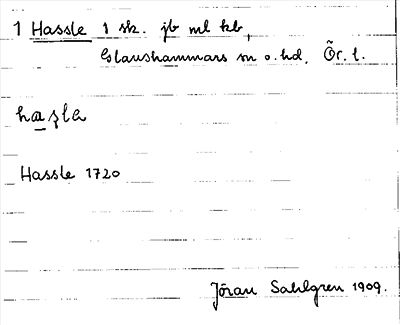 1 Hassle 1 sk. jb ml kb,
Glanshammars sn o. hd, Ör. l.
hazla
Hassle 1720
Jöran Sahlgren 1909.